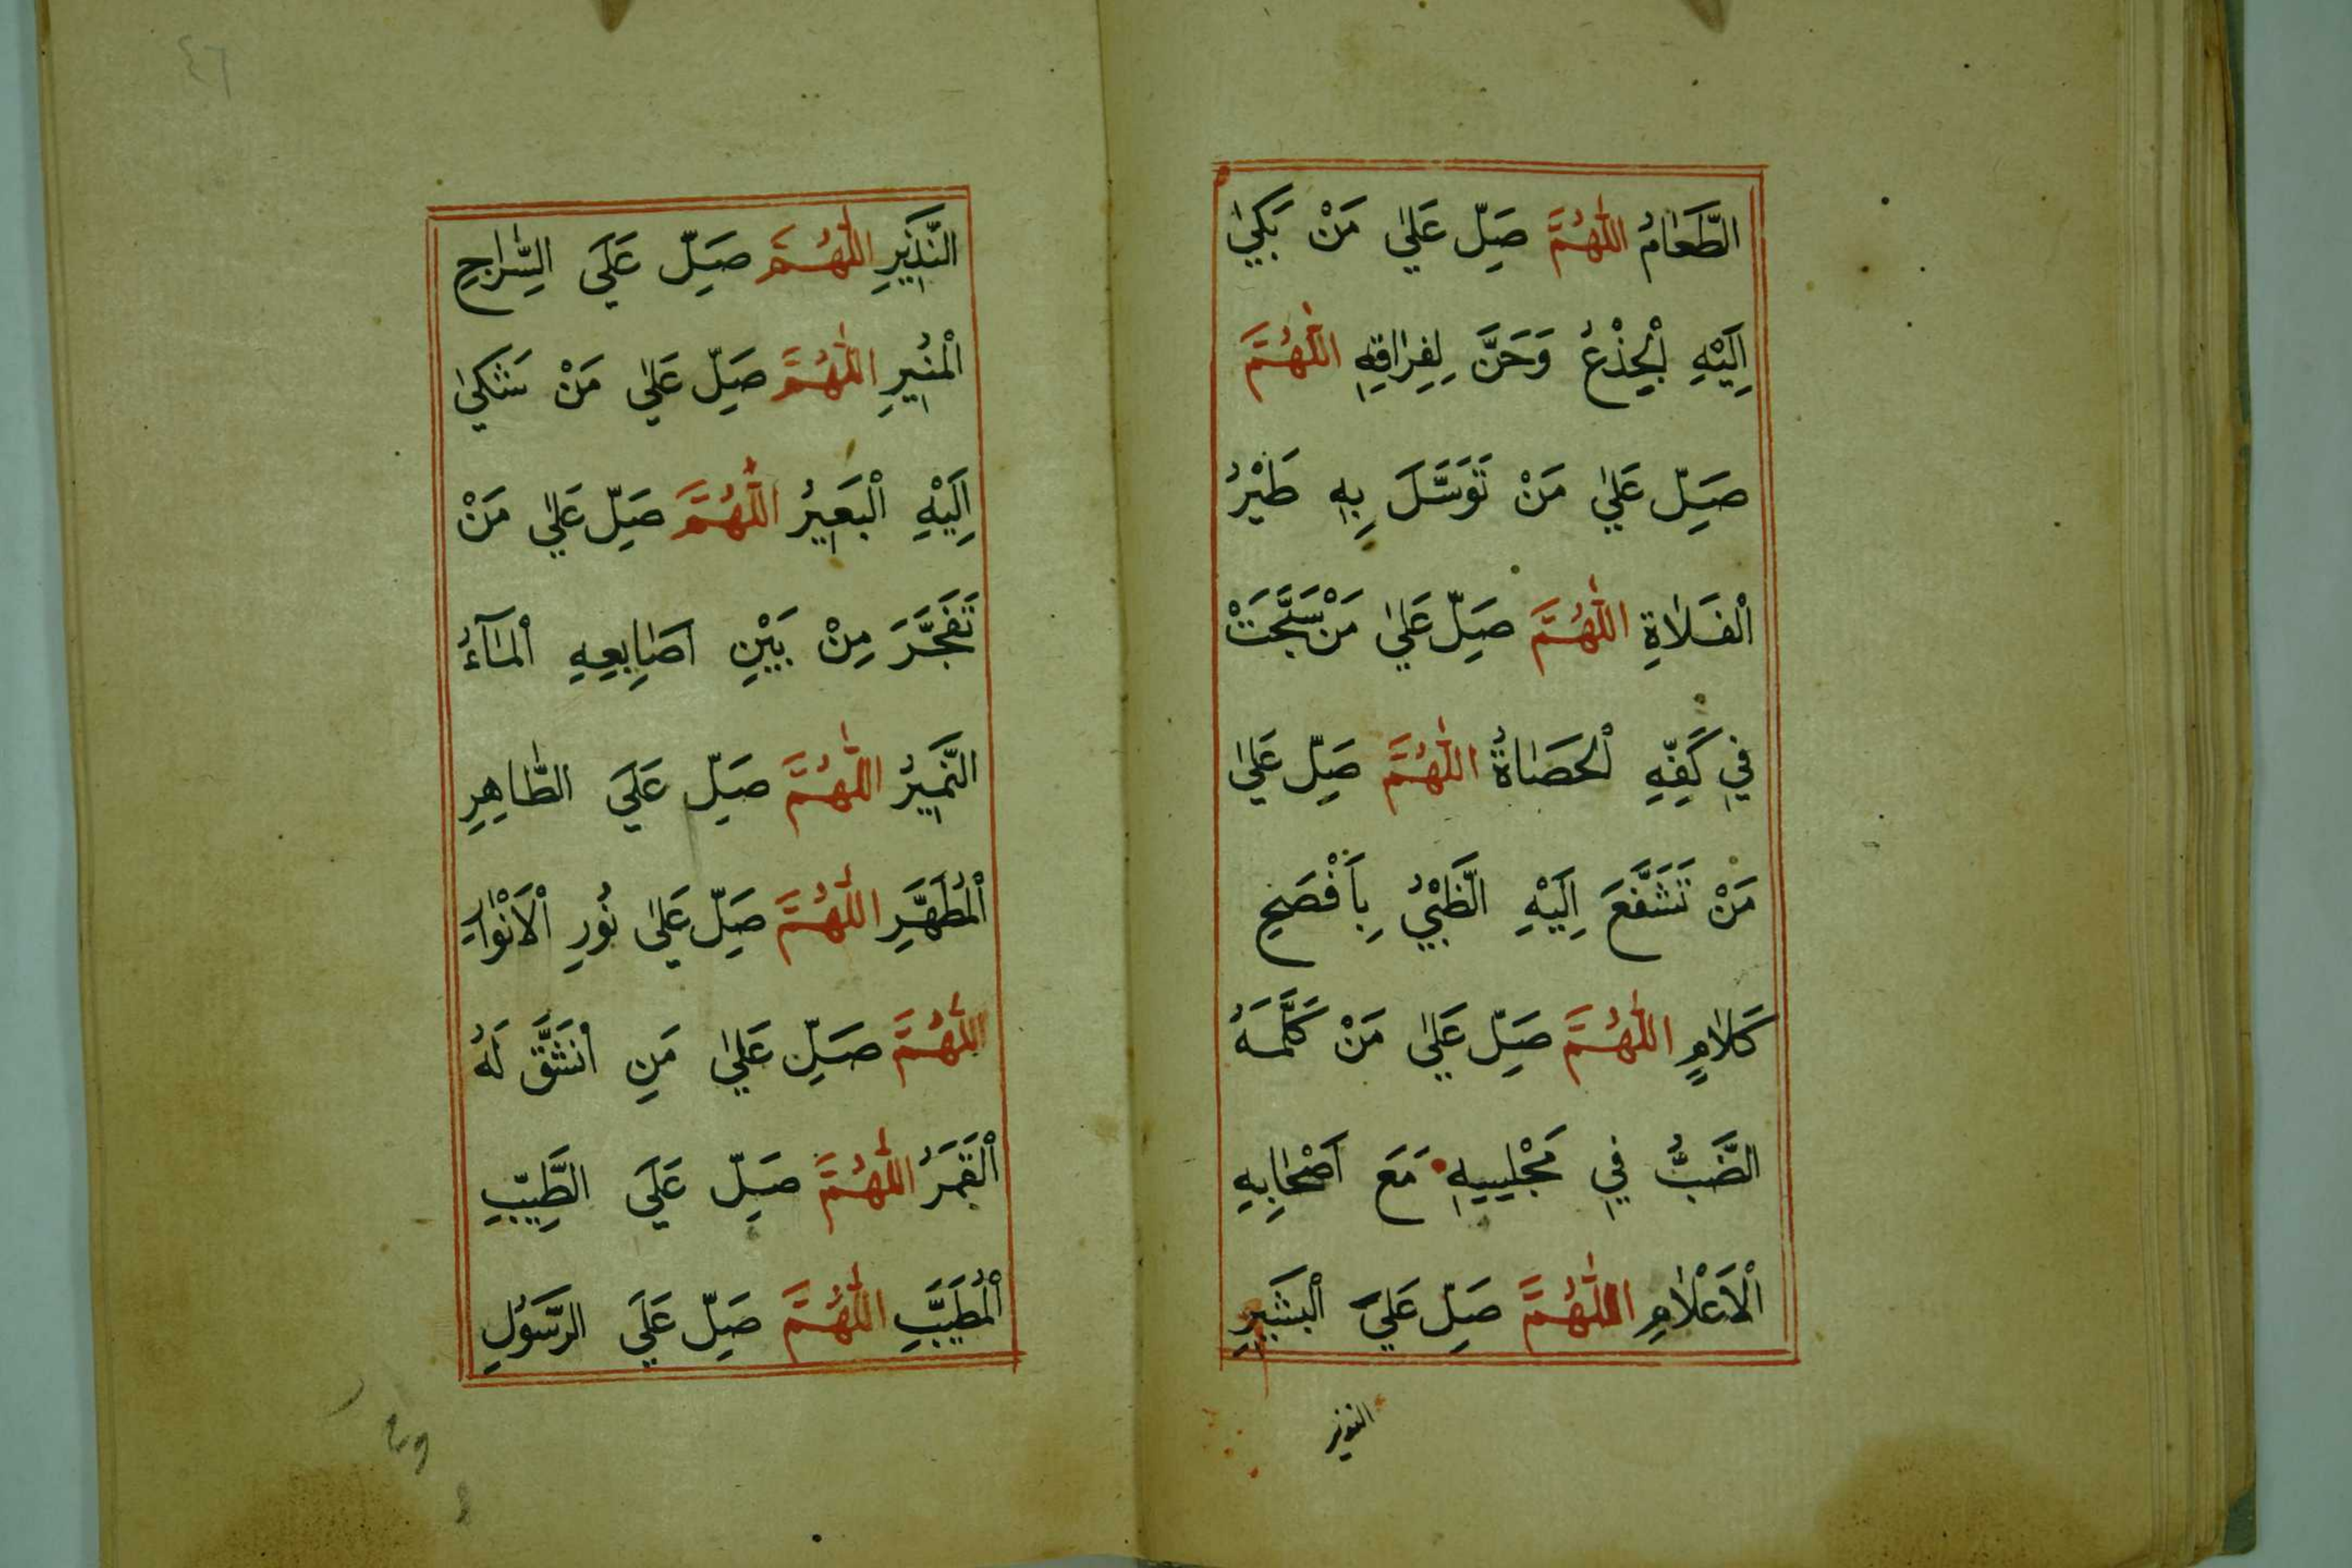 الطَّعَامُ اللّٰهُمَّ صَلِّ عَلٰي مَنْ بَكٰي
اِلَيْهِ الْجِذْعُ وَحَنَّ لِفِرَاقِهِ اللّٰهُمَّ
صَلِّ عَلٰي مَنْ تَوَسَّلَ بِهِ طَيْرُ
الْفَلَاةِ اللّٰهُمَّ صَلِّ عَلٰي مَنْ سَبَّحَتْ
فِي كَفِّهِ الْحَصَاةُ اللّٰهُمَّ صَلِّ عَلٰي
مَنْ تَشَفَّعَ اِلَيْهِ الظَّبْيُ بِاَفْصَحِ
كَلَامٍ اللّٰهُمَّ صَلِّ عَلٰي مَنْ كَلَّمَهُ
الضَّبُّ فِي مَجْلِسِهِ مَعَ اَصْحَابِهِ
الْاَعْلَامِ اللّٰهُمَّ صَلِّ عَلَي الْبَشِيرِ
النذير
٤٦
النَّذِيرِ اللّٰهُمَّ صَلِّ عَلَي السِّرَاجِ
الْمُنِيرِ اللّٰهُمَّ صَلِّ عَلٰي مَنْ شَكٰي
اِلَيْهِ الْبَعِيرُ اللّٰهُمَّ صَلِّ عَلٰي مَنْ
تَفَجَّرَ مِنْ بَيْنِ اَصَابِعِهِ الْمَآءُ
النَّمِيرُ اللّٰهُمَّ صَلِّ عَلَي الطَّاهِرِ
الْمُطَهَّرِ اللّٰهُمَّ صَلِّ عَلٰي نُورِ الْاَنْوَارِ
اللّٰهُمَّ صَلِّ عَلٰي مَنِ انْشَقَّ لَهُ
الْقَمَرُ اللّٰهُمَّ صَلِّ عَلَي الطَّيِّبِ
الْمُطَيَّبِ اللّٰهُمَّ صَلِّ عَلَي الرَّسُولِ